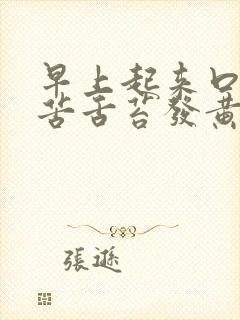 早上起来口
苦舌苔發黃
張遜